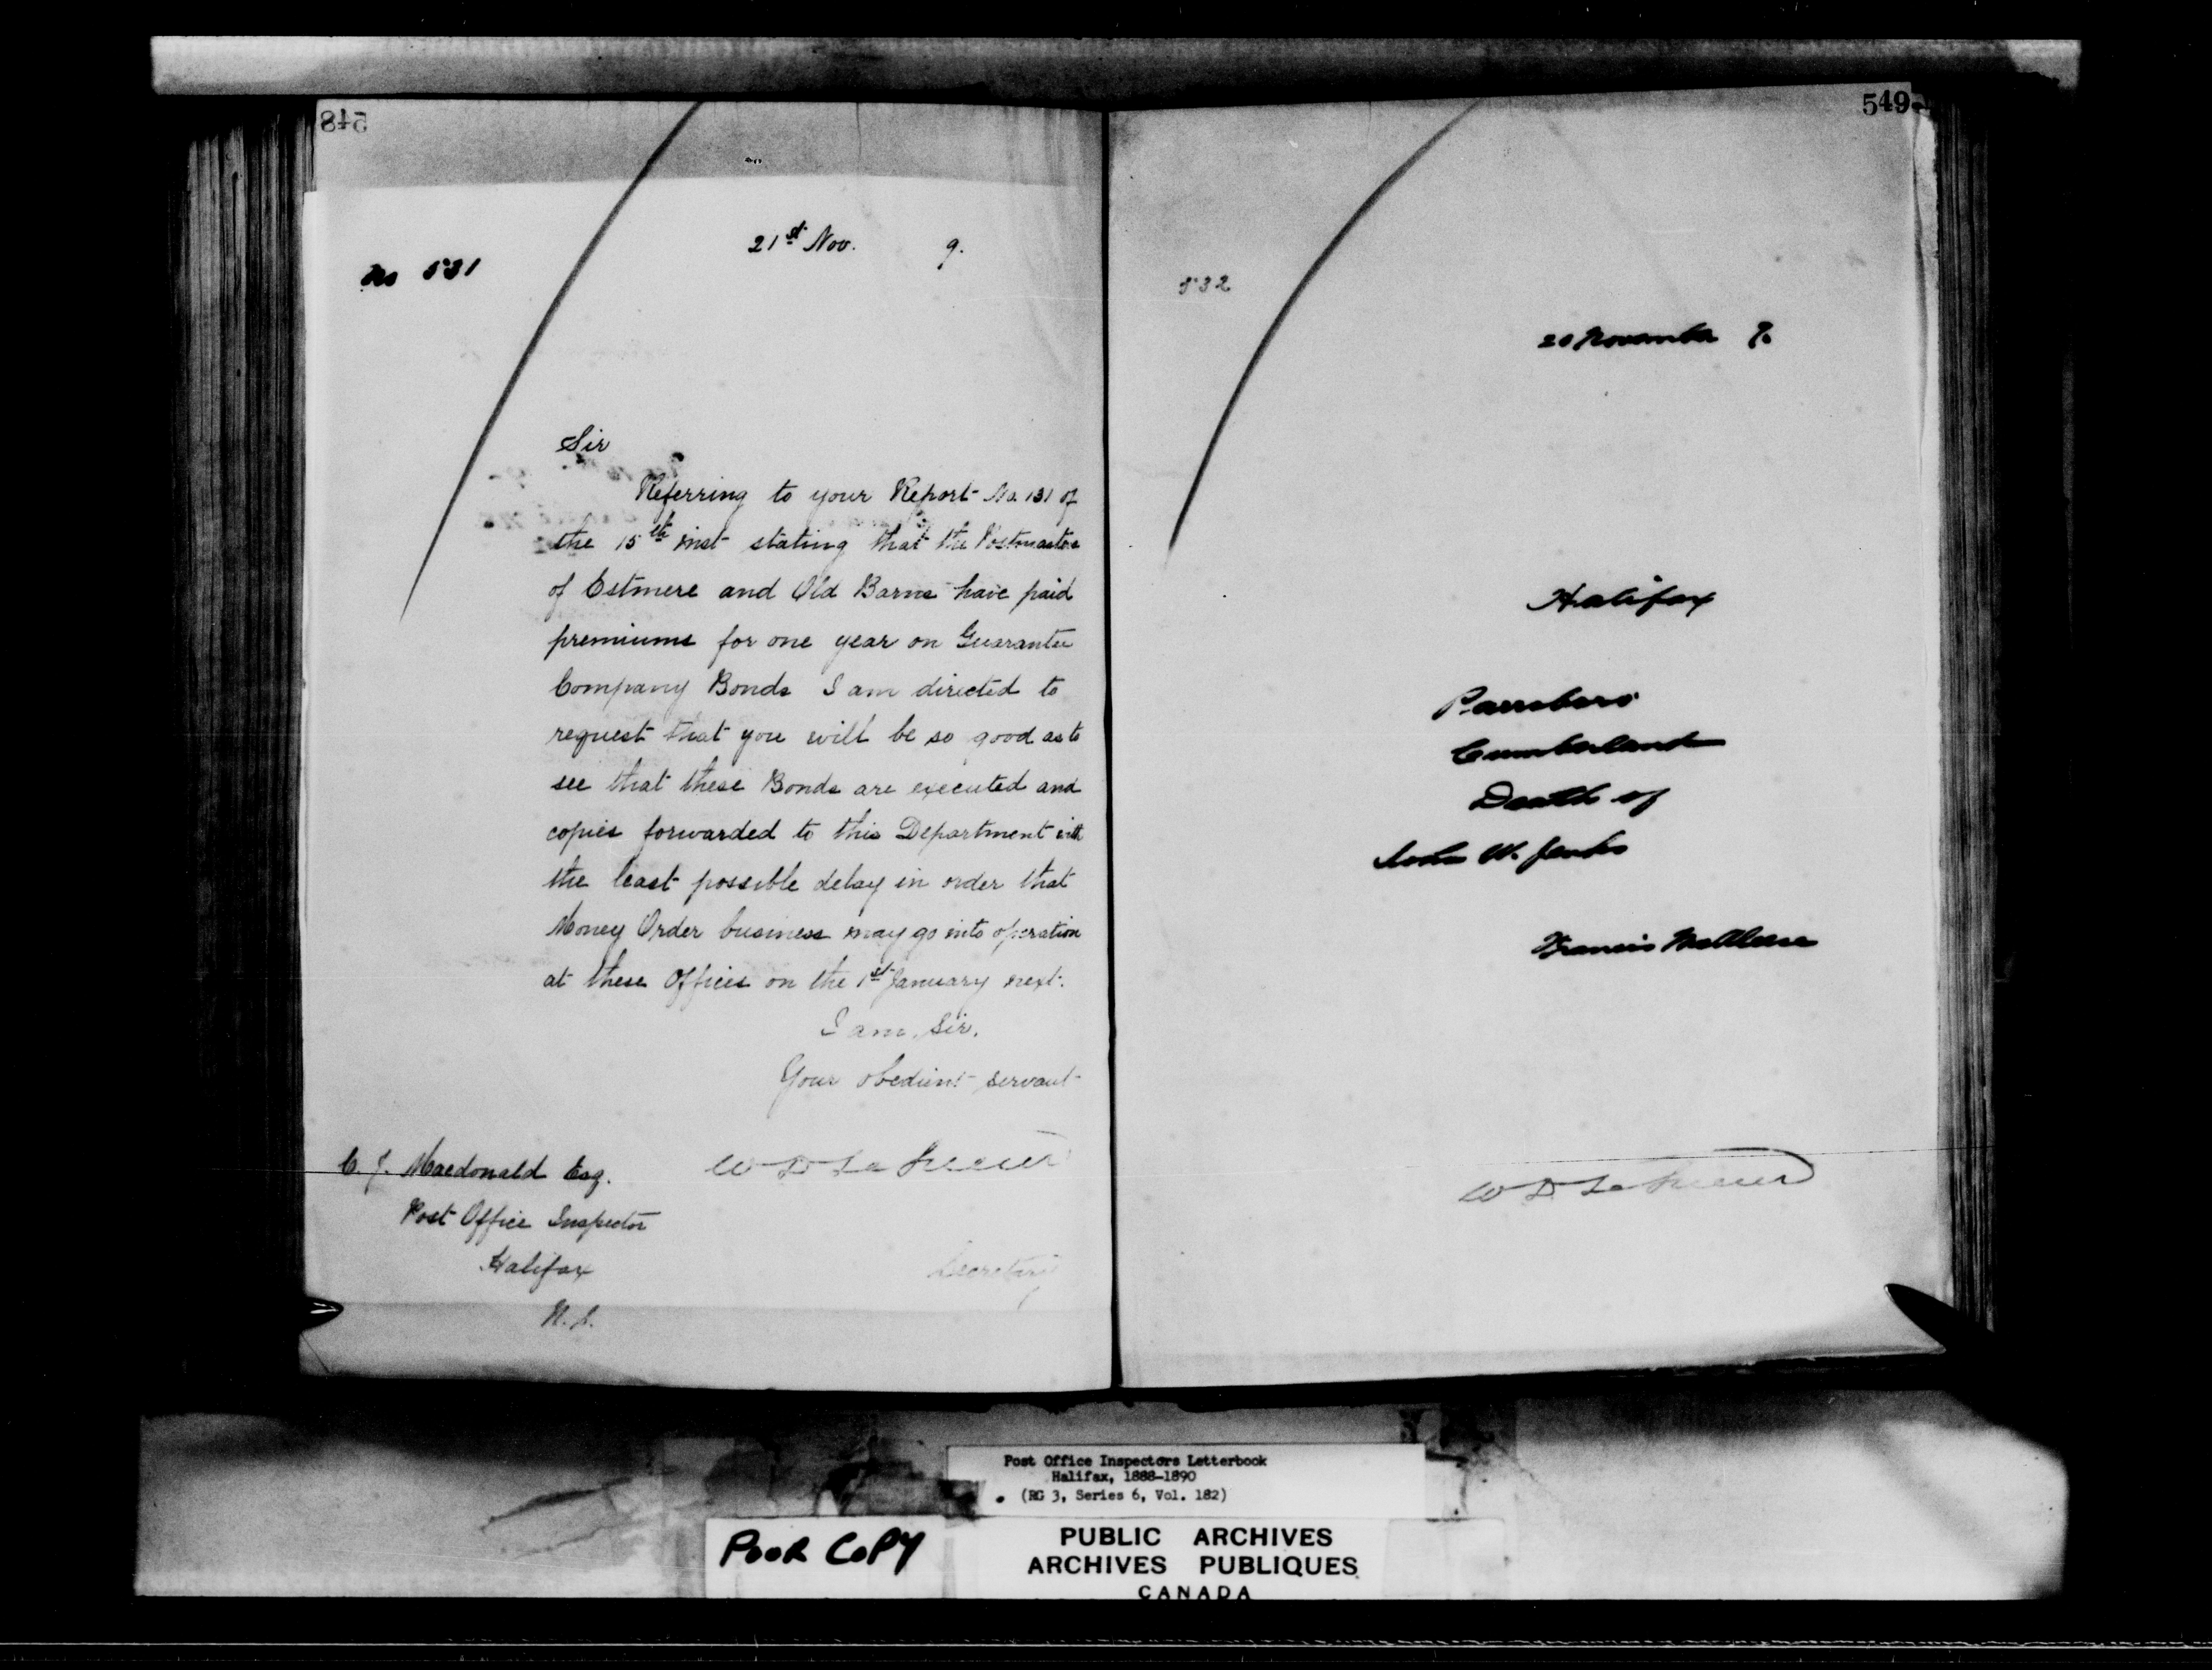 548
21st Nov. 9.
No 531
Sir
Referring to your Report No. 131 of
the 15th inst stating that the Postmasters
of Estmere and Old Barns have paid
premiums for one year on Guarantee
Company Bonds I am directed to
request that you will be so good as to
see that these Bonds are executed and
copies forwarded to this Department with
the least possible delay in order that
Money Order business may go into operation
at these Offices on the 1st January next.
I am, Sir,
Your obedient servant
W D Le Sueur
Secretary
C. J. Macdonald Esq.
Post Office Inspector
Halifax
N.S.
549
532
20 November 9.
Halifax
Parrsboro
Cumberland
Death of
W. Jenks
Francis McAleese
W D Le Sueur
Post Office Inspectors Letterbook
Halifax, 1888-1890
(RG 3, Series 6, Vol. 182)
POOR COPY
PUBLIC ARCHIVES
ARCHIVES PUBLIQUES
CANADA